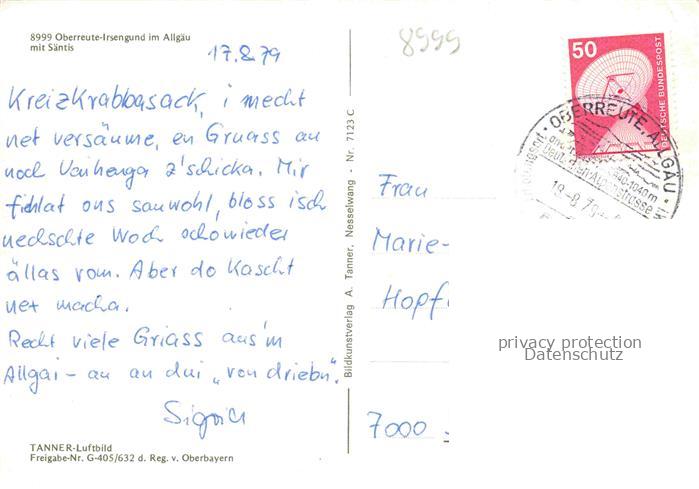 8999 Oberreute-Irsengund im Allgäu
mit Säntis
17.8.79
8999
Kreizkrabbasack, i mecht
net versäume, en Gruass au
noch Vaihenga z'schicka. Mir
fühlat ons sauwohl, bloss isch
nedschte Woch scho wieder
ällas rom. Aber do kascht
nex macha.
Recht viele Griass aus'm
Allgai - au an dui "von drieba".
Bildkunstverlag A. Tanner, Nesselwang - Nr. 7123 C
TANNER-Luftbild
Freigabe-Nr. G-405/632 d. Reg. v. Oberbayern
50
DEUTSCHE BUNDESPOST
OBERREUTE, ALLGÄU
Frau
Marie-
Hopf
7000
privacy protection
Datenschutz